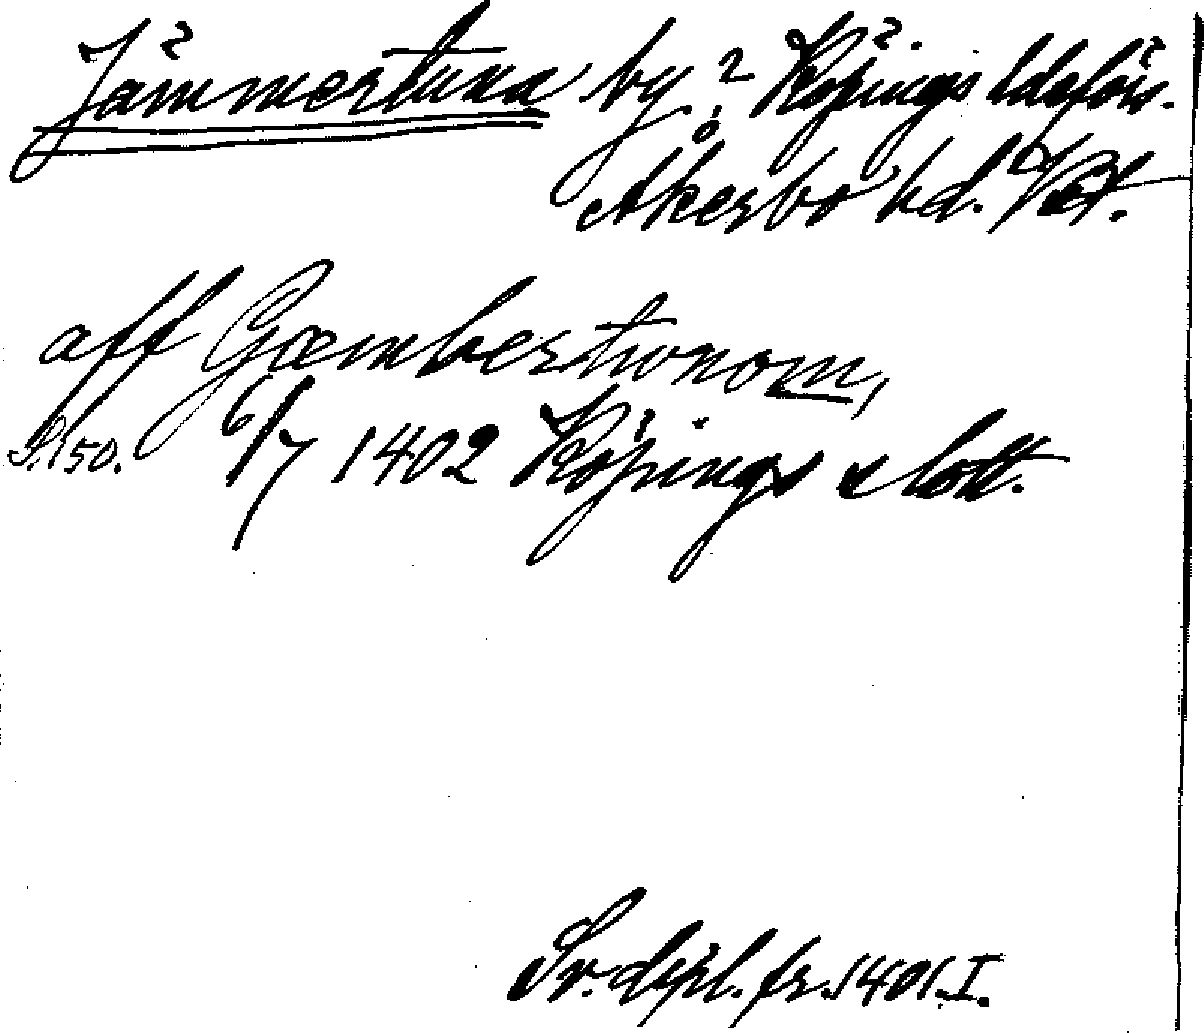 Jämmertuna by, Köpings ldsförs.
Åkerbo hd. Vstm.
aff Gæmbertwnom,
S. 150. 6/7 1402 Köpings slott.
Sv. dipl. fr. 1401. I.